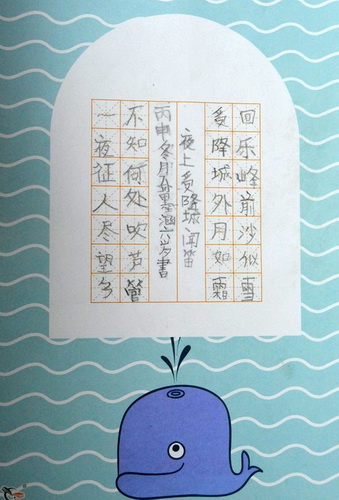 回乐峰前沙似雪
受降城外月如霜
夜上受降城闻笛
丙申冬月涵六岁書
不知何处吹芦管
一夜征人尽望乡